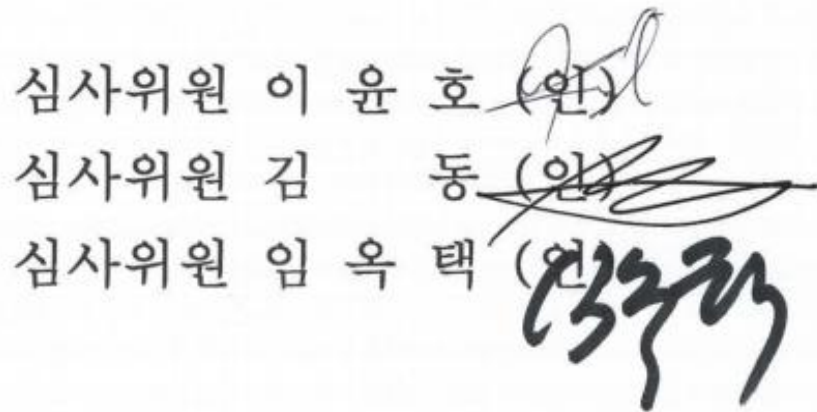 심사위원 이 윤 호 (인)
심사위원 김 동 (인)
심사위원 임 옥 택 (인)